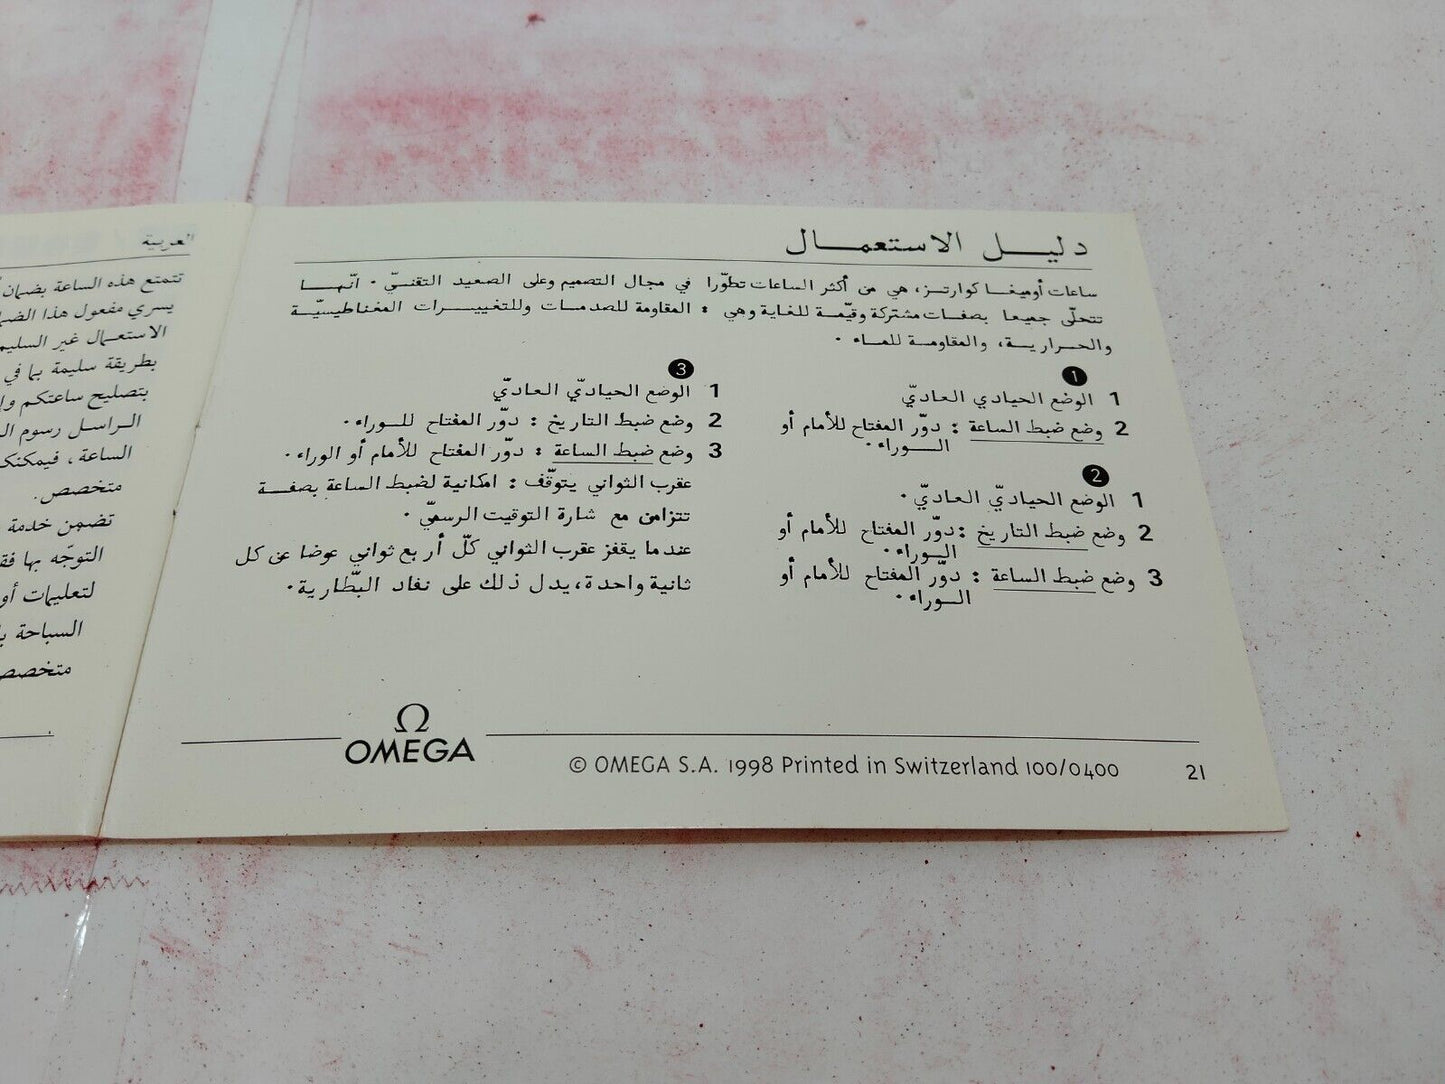 دليل الاستعمال
ساعات أوميغا كوارتز، هي من أكثر الساعات تطوّرا في مجال التصميم وعلى الصعيد التقنيّ. انّها
تتحلّى جميعا بصفات مشتركة وقيّمة للغاية وهي: المقاومة للصدمات وللتغييرات المغناطيسيّة
والحرارية، والمقاومة للماء.
1
1 الوضع الحيادي العاديّ
2 وضع ضبط الساعة: دوّر المفتاح للأمام أو
الوراء.
2
1 الوضع الحياديّ العاديّ
2 وضع ضبط التاريخ: دوّر المفتاح للأمام أو
الوراء.
3 وضع ضبط الساعة: دوّر المفتاح للأمام أو
الوراء.
3
1 الوضع الحياديّ العاديّ
2 وضع ضبط التاريخ: دوّر المفتاح للوراء.
3 وضع ضبط الساعة: دوّر المفتاح للأمام أو الوراء.
عقرب الثواني يتوقّف: امكانية لضبط الساعة بصفة
تتزامن مع شارة التوقيت الرسميّ.
عندما يقفز عقرب الثواني كلّ أربع ثواني عوضا عن كل
ثانية واحدة، يدل ذلك على نفاد البطّارية.
Ω
OMEGA
© OMEGA S.A. 1998 Printed in Switzerland 100/0400
21
العربية
تتمتع هذه الساعة بضمان
يسري مفعول هذا
الاستعمال غير السليم
بطريقة سليمة بما في
بتصليح ساعتكم
الراسل رسوم
الساعة، فيمكنك
متخصص.
تضمن خدمة
التوجّه بها
لتعليمات
السباحة
متخصص